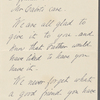 Mr. Evans' care.
We are all glad to
give it to you and
know that Father would
have liked to have you
have it.
We never forget what
a good friend you have